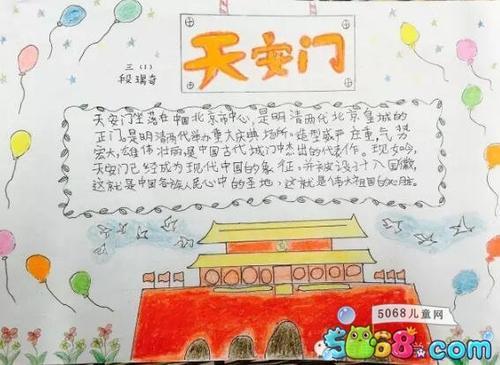 天安门
三（1）
段瑞奇
天安门坐落在中国北京市中心，是明清两代北京皇城的
正门，是明清两代举办重大庆典场所。造型威严庄重，气势
宏大，雄伟壮丽，是中国古代城门杰出的代表作。现如今，
天安门已经成为现代中国的象征，并被设计入国徽，
这就是中国各族人民心中的圣地，这就是伟大祖国的心脏。
5068儿童网
5068.com